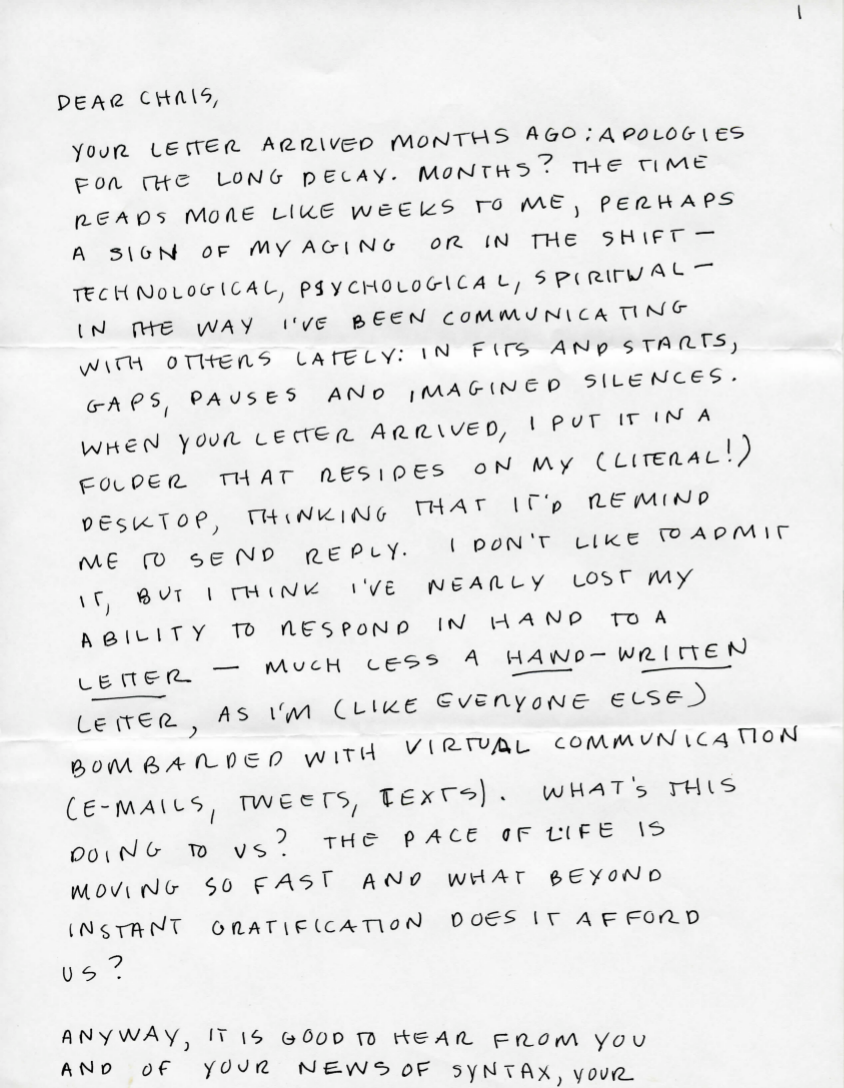 1
DEAR CHRIS,
YOUR LETTER ARRIVED MONTHS AGO: APOLOGIES
FOR THE LONG DELAY. MONTHS? THE TIME
READS MORE LIKE WEEKS TO ME, PERHAPS
A SIGN OF MY AGING OR IN THE SHIFT —
TECHNOLOGICAL, PSYCHOLOGICAL, SPIRITUAL —
IN THE WAY I'VE BEEN COMMUNICATING
WITH OTHERS LATELY: IN FITS AND STARTS,
GAPS, PAUSES AND IMAGINED SILENCES.
WHEN YOUR LETTER ARRIVED, I PUT IT IN A
FOLDER THAT RESIDES ON MY (LITERAL!)
DESKTOP, THINKING THAT IT'D REMIND
ME TO SEND REPLY. I DON'T LIKE TO ADMIT
IT, BUT I THINK I'VE NEARLY LOST MY
ABILITY TO RESPOND IN HAND TO A
LETTER — MUCH LESS A HAND-WRITTEN
LETTER, AS I'M (LIKE EVERYONE ELSE)
BOMBARDED WITH VIRTUAL COMMUNICATION
(E-MAILS, TWEETS, TEXTS). WHAT'S THIS
DOING TO US? THE PACE OF LIFE IS
MOVING SO FAST AND WHAT BEYOND
INSTANT GRATIFICATION DOES IT AFFORD
US?
ANYWAY, IT IS GOOD TO HEAR FROM YOU
AND OF YOUR NEWS OF SYNTAX, YOUR